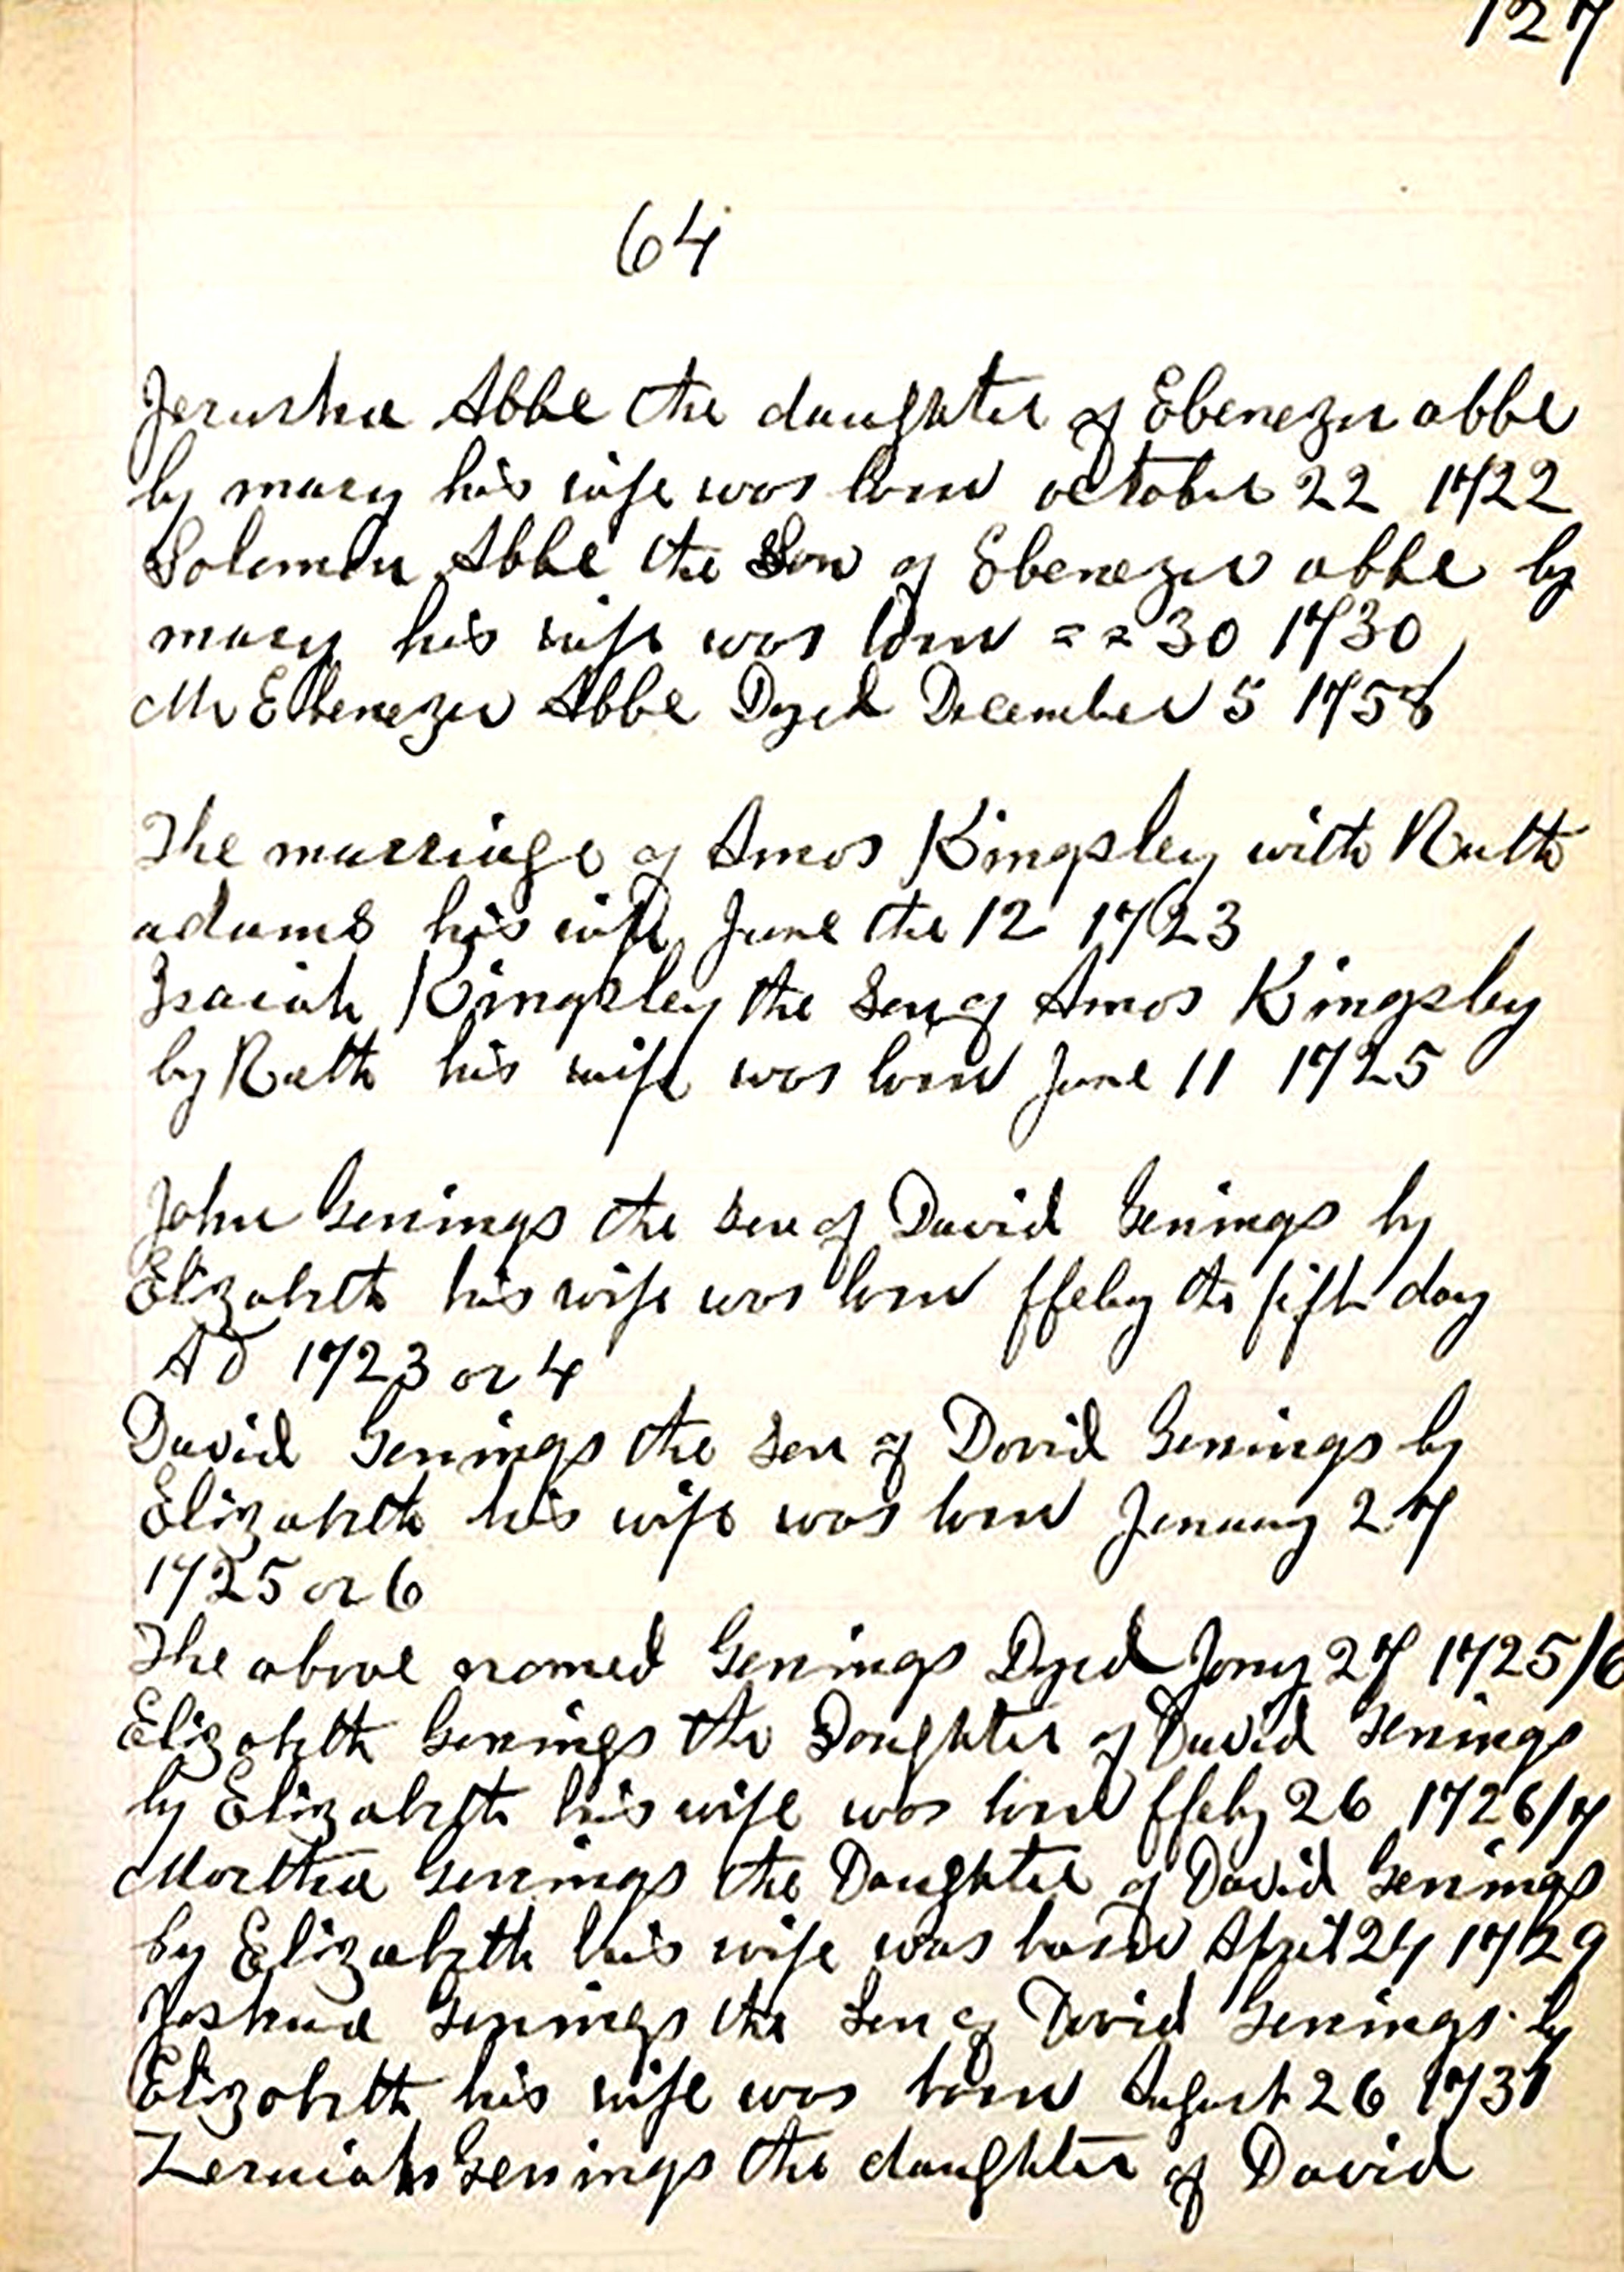 127
64
Jerusha Abbe the daughter of Ebenezer abbe
by mary his wife was born october 22 1722
Solomon Abbe the Son of Ebenezer abbe by
mary his wife was born = = 30 1730
Mr Ebenezer Abbe Dyed December 5 1758
The marriage of Amos Kingsley with Ruth
adams his wife June the 12 1723
Isaiah Kingsley the Son of Amos Kingsley
by Ruth his wife was born June 11 1725
John Genings the son of David Genings by
Elizabeth his wife was born ffeby the fifth day
AD 1723 or 4
David Genings the son of David Genings by
Elizabeth his wife was born Jenuary 27
1725 or 6
The above named Genings Dyed Jany 27 1725/6
Elizabeth Genings the Daughter of David Genings
by Elizabeth his wife was born ffeby 26 1726/7
Martha Genings the Daughter of David Genings
by Elizabeth his wife was born April 24 1729
Joshua Genings the Son of David Genings by
Elizabeth his wife was born August 26 1731
Zerniah Genings the daughter of David